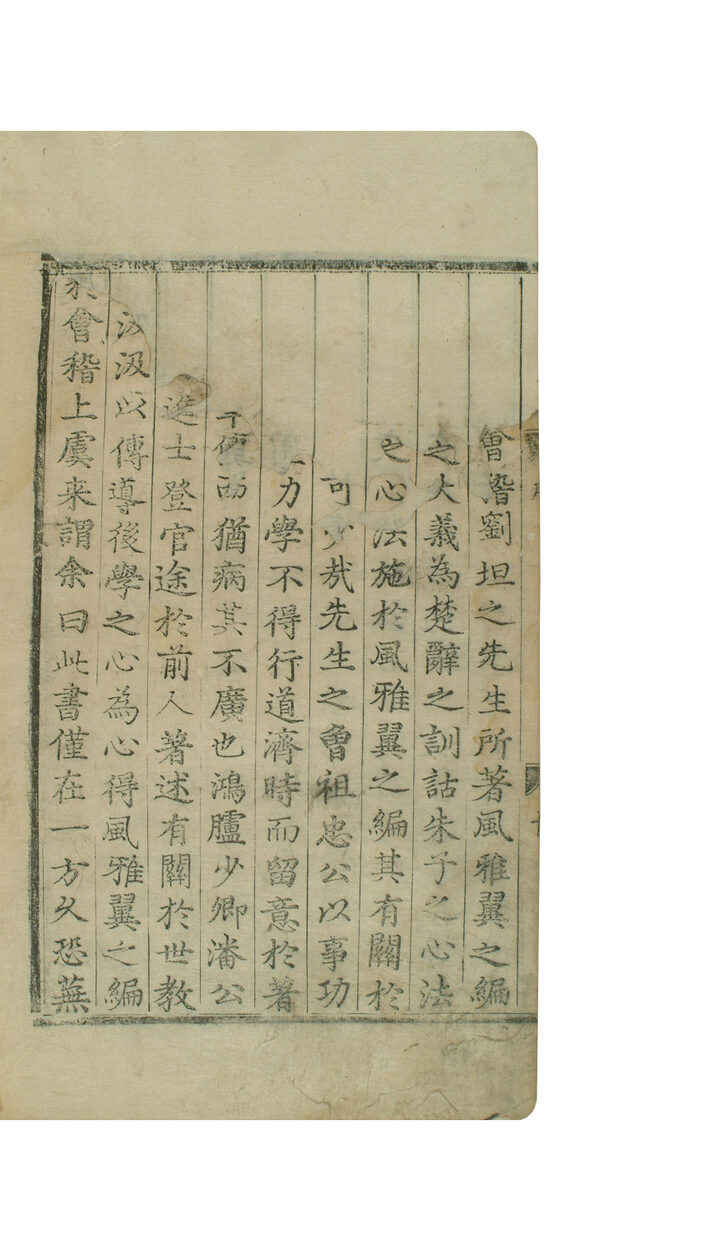 會稽劉坦之先生所著風雅翼之編
之大義為楚辭之訓詁朱子之心法
之心法施於風雅翼之編其有關於
可少哉先生之曾祖忠公以事功
力學不得行道濟時而留意於著
傳而猶病其不廣也鴻臚少卿潘公
進士登官途於前人著述有關於世教
汲汲以傳導後學之心為心得風雅翼之編
於會稽上虞来謂余曰此書僅在一方久恐蕪